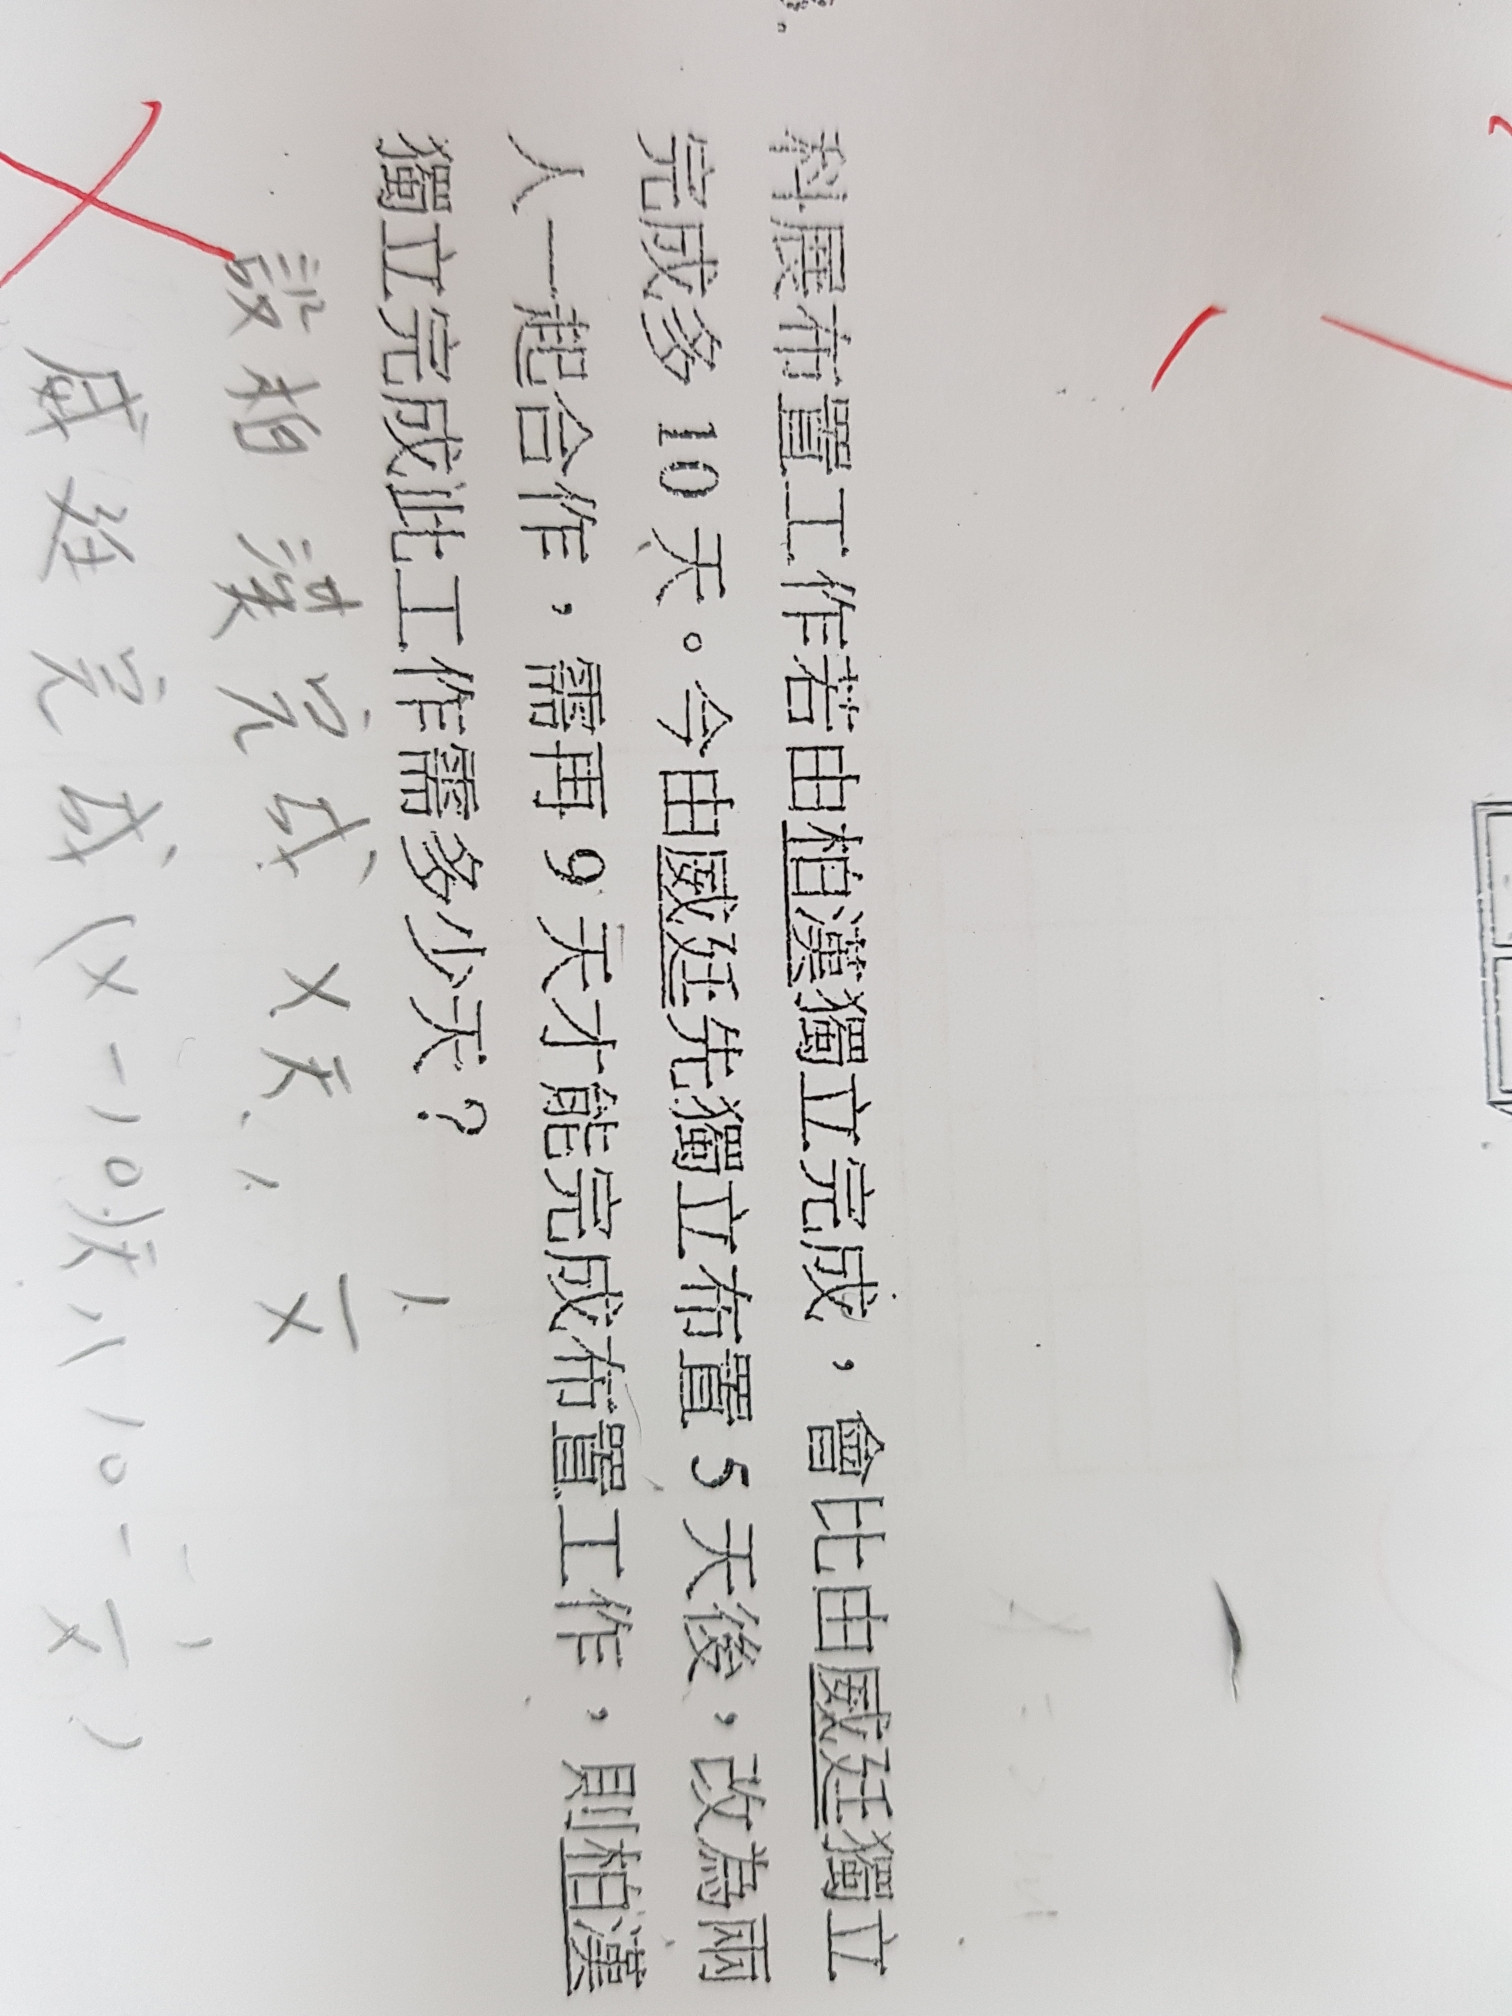 科展布置工作若由柏漢獨立完成，會比由威廷獨立
完成多 10 天。今由威廷先獨立布置 5 天後，改為兩
人一起合作，需再 9 天才能完成布置工作，則柏漢
獨立完成此工作需多少天？
設柏漢完成 x 天，1/x
威廷完成 (x-10)天，